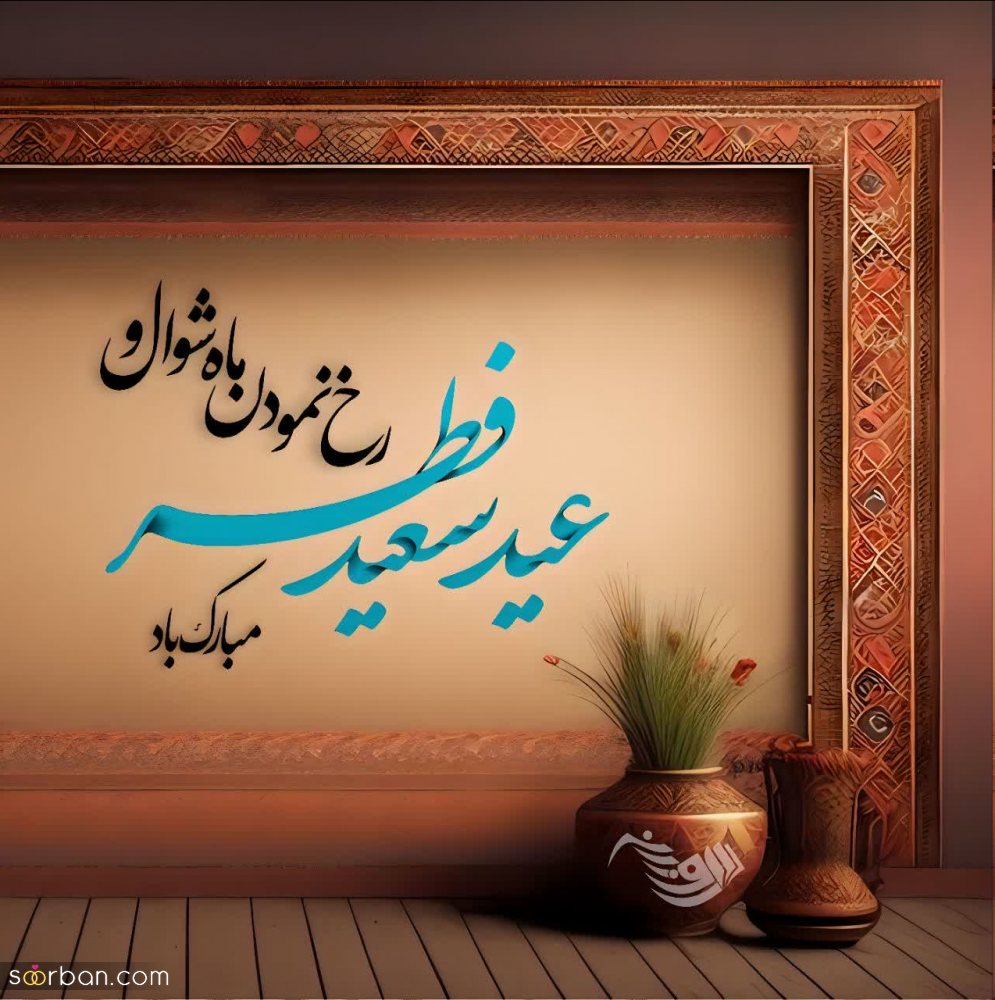 رخ نمودن ماه شوال و
عید سعید فطر
مبارک باد
soorban.com